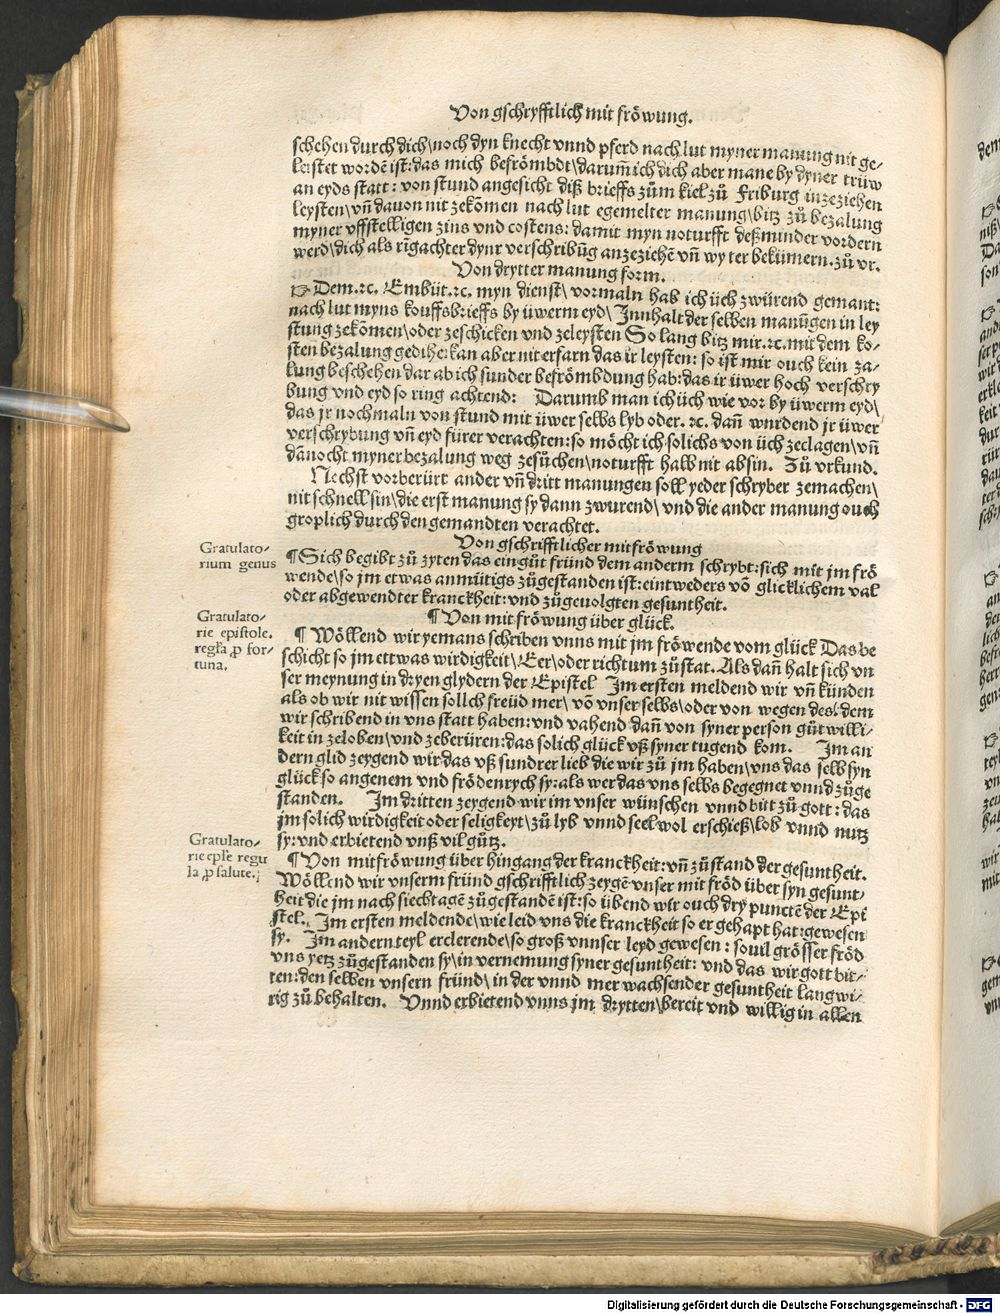 Von gschryfftlich mit fröwung.
schehen durch dich\ noch dyn knecht vnnd pferd nach lut myner manung nit ge-
leistet wordē ist: das mich befrömbdt\ darum̄ ich dich aber mane by dyner trüw
an eyds statt: von stund angesicht diß brieffs zům kiel zů Friburg inzeziehen
leysten\ vn̄ dauon nit zekōmen nach lut egemelter manung\ bitz zů bezalung
myner vffstelligen zins vnd costens: damit myn noturfft deßminder vordern
werd\ dich als rigachter dynr verschribūg anzeziehē vn̄ wyter bekümern. zů vr.
Von drytter manung form.
☞ Dem.ꝛc. Embüt.ꝛc. myn dienst\ vormaln hab ich üch zwürend gemant:
nach lut myns kouffsbrieffs by üwerm eyd\ Innhalt der selben manūgen in ley
stung zekōmen\ oder zeschicken vnd zeleysten So lang bitz mir.ꝛc. mit dem ko-
sten bezalung gedihe: kan aber nit erfarn das ir leysten: so ist mir ouch kein za-
lung beschehen dar ab ich sunder befrömbdung hab: das ir üwer hoch verschry
bung vnd eyd so ring achtend: Darumb man ich üch wie vor by üwerm eyd\
das jr nochmaln von stund mit üwer selbs lyb oder. ꝛc. dan̄ wurdend jr üwer
verschrybung vn̄ eyd fürer verachten: so möcht ich solichs von üch zeclagen\ vn̄
dānocht myner bezalung weg zesůchen\ noturfft halb nit absin. Zů vrkund.
Nechst vorberürt ander vn̄ dritt manungen soll yeder schryber zemachen\
nit schnell sin\ die erst manung sy dann zwurend\ vnd die ander manung ouch
groplich durch den gemandten verachtet.
Von gschrifftlicher mitfröwung
Gratulato-
rium genus
¶ Sich begibt zů zyten das ein gůt fründ dem anderm schrybt: sich mit jm frö
wende\ so jm etwas anmütigs zůgestanden ist: eintweders vō glicklichem val
oder abgewendter kranckheit: vnd zůgeuolgten gesuntheit.
¶ Von mitfröwung über glück.
Gratulato-
rie epistole.
regl'a ꝓ for-
tuna.
¶ Wöllend wir yemans schriben vnns mit jm fröwende vom glück Das be
schicht so jm ettwas wirdigkeit\ Eer\ oder richtum zůstat. Als dan̄ halt sich vn
ser meynung in dryen glydern der Epistel Im ersten meldend wir vn̄ künden
als ob wir nit wissen sollch freüd mer\ vō vnser selbs\ oder von wegen des: dem
wir schribend in vns statt haben: vnd vahend dan̄ von syner person gůtwilli-
keit in zeloben\ vnd zeberüren: das solich glück vß syner tugend kom. Im an
dern glid zeygend wir das vß sundrer lieb die wir zů jm haben\ vns das selb syn
glück so angenem vnd frödenrych sy: als wer das vns selbs begegnet vnnd zůge
standen. Im dritten zeygend wir im vnser wünschen vnnd bitt zů gott: das
jm solich wirdigkeit oder seligkeyt\ zů lyb vnnd seel wol erschieß\ lob vnnd nutz
sy: vnd erbietend vnß vil gůtz.
Gratulato-
rie ep̄le regu
la ꝓ salute.
¶ Von mitfröwung über hingang der kranckheit: vn̄ zůstand der gesuntheit.
Wöllend wir vnserm fründ gschrifftlich zeygē vnser mit fröd über syn gesunt-
heit die jm nach siechtagē zůgestanden ist: so übend wir ouch dry punctē der Epi
stel. Im ersten meldende\ wie leid vns die kranckheit so er gehapt hat: gewesen
sy. Im andern teyl erclerende\ so groß vnnser leyd gewesen: souil grösser fröd
vns yetz zůgestanden sy\ in vernemung syner gesuntheit: vnd das wir gott bit-
ten: den selben vnsern fründ\ in der vnnd mer wachsender gesuntheit langwi-
rig zů behalten. Vnnd erbietend vnns jm drytten\ bereit vnd willig in allen
Digitalisierung gefördert durch die Deutsche Forschungsgemeinschaft - DFG